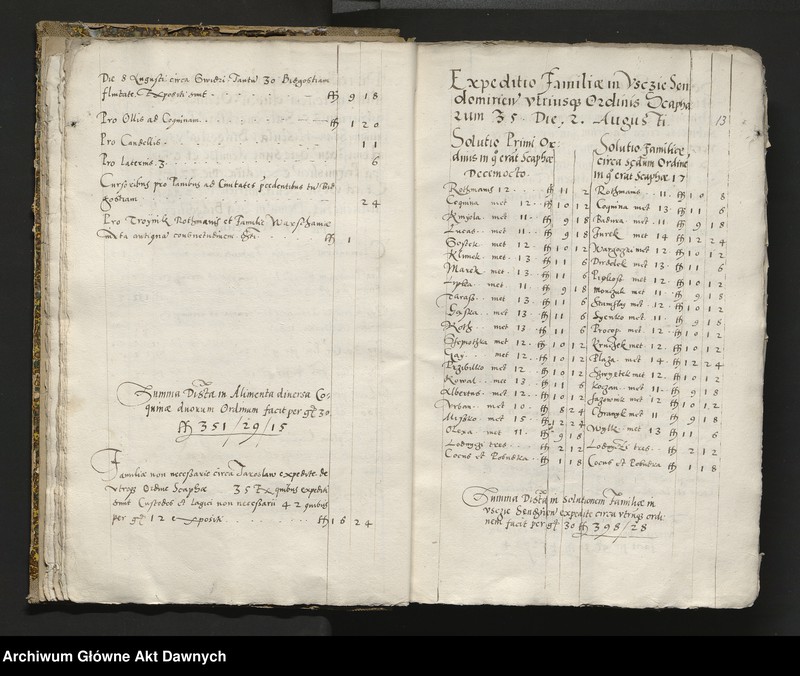 Die 8 Augusti circa Swiezi Tantū 30 Biegostiam
flui̅tate. Expositi sunt fl 9 18
Pro Ollis ad Coquinam fl 1 2 0
Pro Candellis 11
Pro Laternis 3 6
gostiam 2 4
Pro Troynik Rothmanis et Familie Warschaviæ
iuxta antiquā consuetudinem fl 1
Summa Dicta in Alimenta diversa Co-
quinæ duorum Ordinum facit per gř 30
fl 351/29/15
Familiæ non necessarie circa Jaroslaw expedite de
utroq Ordine Scaphæ 35 Ex quibus expediti
sunt Custodes et Logici non necessarii 42 quibus
per gř 12 expositi fl 16 24
Expeditio Familiæ in Vsczie Sen-
domirien utriusq Ordinis Scapha
rum 35. Die. 2. Augusti
13
Solutio Primi Or-
dinis in q̄ erat Scaphæ
Decemocto.
Rothmans 12 fl 11 2
Coquina met 12 fl 10 12
Kmyola met 11 fl 9 18
Lucas met 11 fl 9 18
Sostek met 12 fl 10 12
Klimek met 13 fl 11 6
Marek met 13 fl 11 6
Lypka met 11 fl 9 18
Taras met 13 fl 11 6
Gąska met 13 fl 11 6
Koth met 13 fl 11 6
met 12 fl 10 12
Gay met 12 fl 10 12
Przibilko met 12 fl 10 12
Kowal met 13 fl 11 6
Albertus met 12 fl 10 12
Vrban met 10 fl 8 24
Missko met 15 fl 12 24
Olexa met 11 fl 9 18
Lodwyzi tres fl 2 12
Cocus et Robudka fl 1 18
Solutio Familiæ
circa scd̄um Ordinē
in q̄ erat Scaphæ 17
Rothmans 11 fl 10 8
Coquina met 13 fl 11 6
Badura met 11 fl 9 18
Jurek met 14 fl 12 24
met 12 fl 10 12
Drozdek met 13 fl 11 6
met 12 fl 10 12
met 11 fl 9 18
met 12 fl 10 12
Syenko met 11 fl 9 18
Procop met 12 fl 10 12
Kruczek met 12 fl 10 12
Plaza met 14 fl 12 24
met 12 fl 10 12
Koczan met 11 fl 9 18
met 12 fl 10 12
met 11 fl 9 18
Wylk met 13 fl 11 6
Lodwyzi tres fl 2 12
Cocus et Robudka fl 1 18
Summa Dicta in Solutionem Familiæ in
Vsczie expedite circa utrūq ordi-
nem facit per gř 30 fl 398/28
Archiwum Główne Akt Dawnych